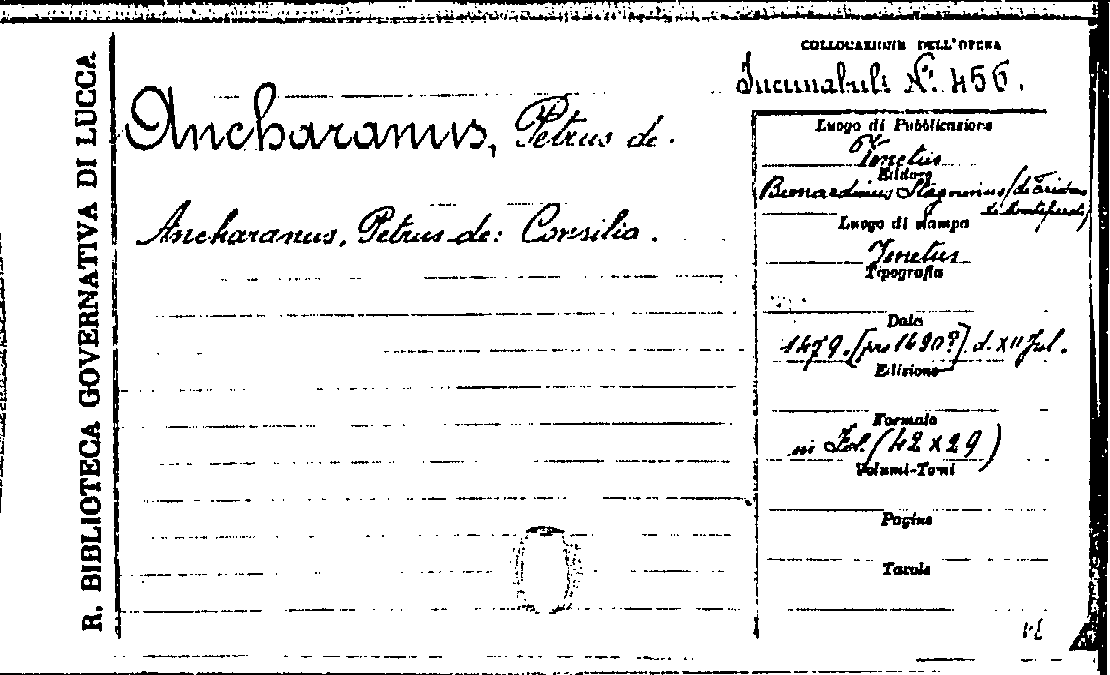 R. BIBLIOTECA GOVERNATIVA DI LUCCA
COLLOCAZIONE DELL'OPERA
Incunabuli N. 456.
Ancharanus, Petrus de.
Ancharanus, Petrus de: Consilia.
Luogo di Pubblicazione
Venetiis
Editore
Bernardinus Stagninus (de Tridino
de Monteferrato)
Luogo di stampa
Venetiis
Tipografia
Data
1479. [pro 1490?] d. XII Jul.
Edizione
Formato
in Fol. (42 x 29)
Volumi-Tomi
Pagine
Tavole